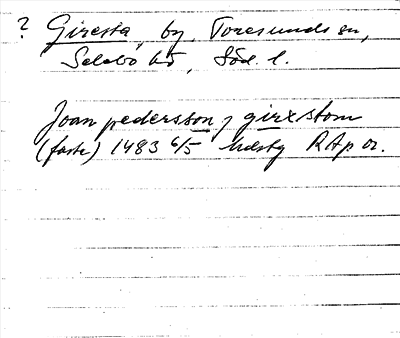 ? Giresta, by, Toresunds sn,
Selebo hd, Söd. l.
Joan pedersson j girxstom
(faste) 1483 6/5 Näsby RAp or.